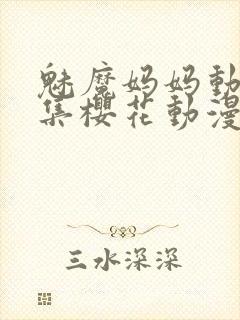 魅魔妈妈動
集櫻花動漫
三水深深